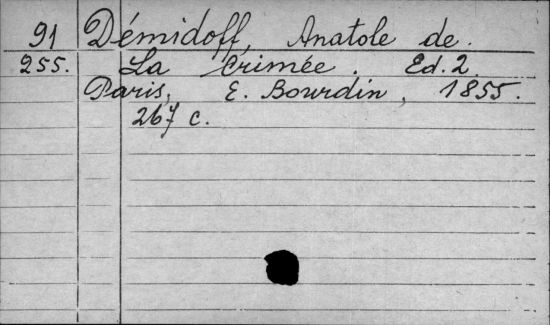 91 Démidoff, Anatole de.
255. La Crimée. Ed. 2.
Paris, E. Bourdin, 1855.
267 c.